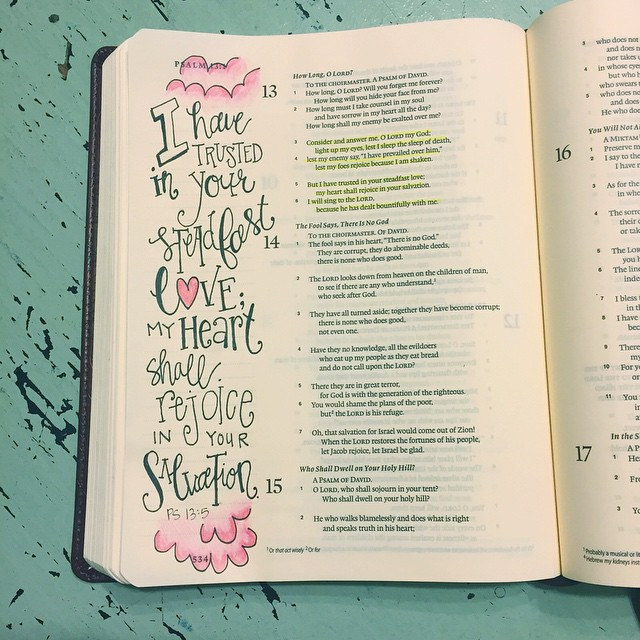 PSALM 13:3
I have
TRUSTED
in your
STEADfast
LOVE;
MY Heart
shall
rejoice
IN YOUR
Salvation.
PS 13:5
534
How Long, O LORD?
13 TO THE CHOIRMASTER. A PSALM OF DAVID.
1 How long, O LORD? Will you forget me forever?
How long will you hide your face from me?
2 How long must I take counsel in my soul
and have sorrow in my heart all the day?
How long shall my enemy be exalted over me?
3 Consider and answer me, O LORD my God;
light up my eyes, lest I sleep the sleep of death,
4 lest my enemy say, "I have prevailed over him,"
lest my foes rejoice because I am shaken.
5 But I have trusted in your steadfast love;
my heart shall rejoice in your salvation.
6 I will sing to the LORD,
because he has dealt bountifully with me.
The Fool Says, There Is No God
14 TO THE CHOIRMASTER. OF DAVID.
1 The fool says in his heart, "There is no God."
They are corrupt, they do abominable deeds,
there is none who does good.
2 The LORD looks down from heaven on the children of man,
to see if there are any who understand,1
who seek after God.
3 They have all turned aside; together they have become corrupt;
there is none who does good,
not even one.
4 Have they no knowledge, all the evildoers
who eat up my people as they eat bread
and do not call upon the LORD?
5 There they are in great terror,
for God is with the generation of the righteous.
6 You would shame the plans of the poor,
but2 the LORD is his refuge.
7 Oh, that salvation for Israel would come out of Zion!
When the LORD restores the fortunes of his people,
let Jacob rejoice, let Israel be glad.
Who Shall Dwell on Your Holy Hill?
15 A PSALM OF DAVID.
1 O LORD, who shall sojourn in your tent?
Who shall dwell on your holy hill?
2 He who walks blamelessly and does what is right
and speaks truth in his heart;
1 Or that act wisely 2 Or for
3 who does not
and does n
nor takes
4 in whose eyes
but who h
who swears
5 who does no
and does
He who do
You Will Not A
16 A MIKTAM
1 Preserve m
2 I say to the
I have
3 As for the
in wh
4 The sorr
their
or tak
5 The LO
you h
6 The lin
inde
7 I bless
in t
8 I have
bec
9 There
my
10 For y
or
11 You
In the S
17 A P
1 He
2 Fro
3 Yo
1 Probably a musical or
4 Hebrew my kidneys inst